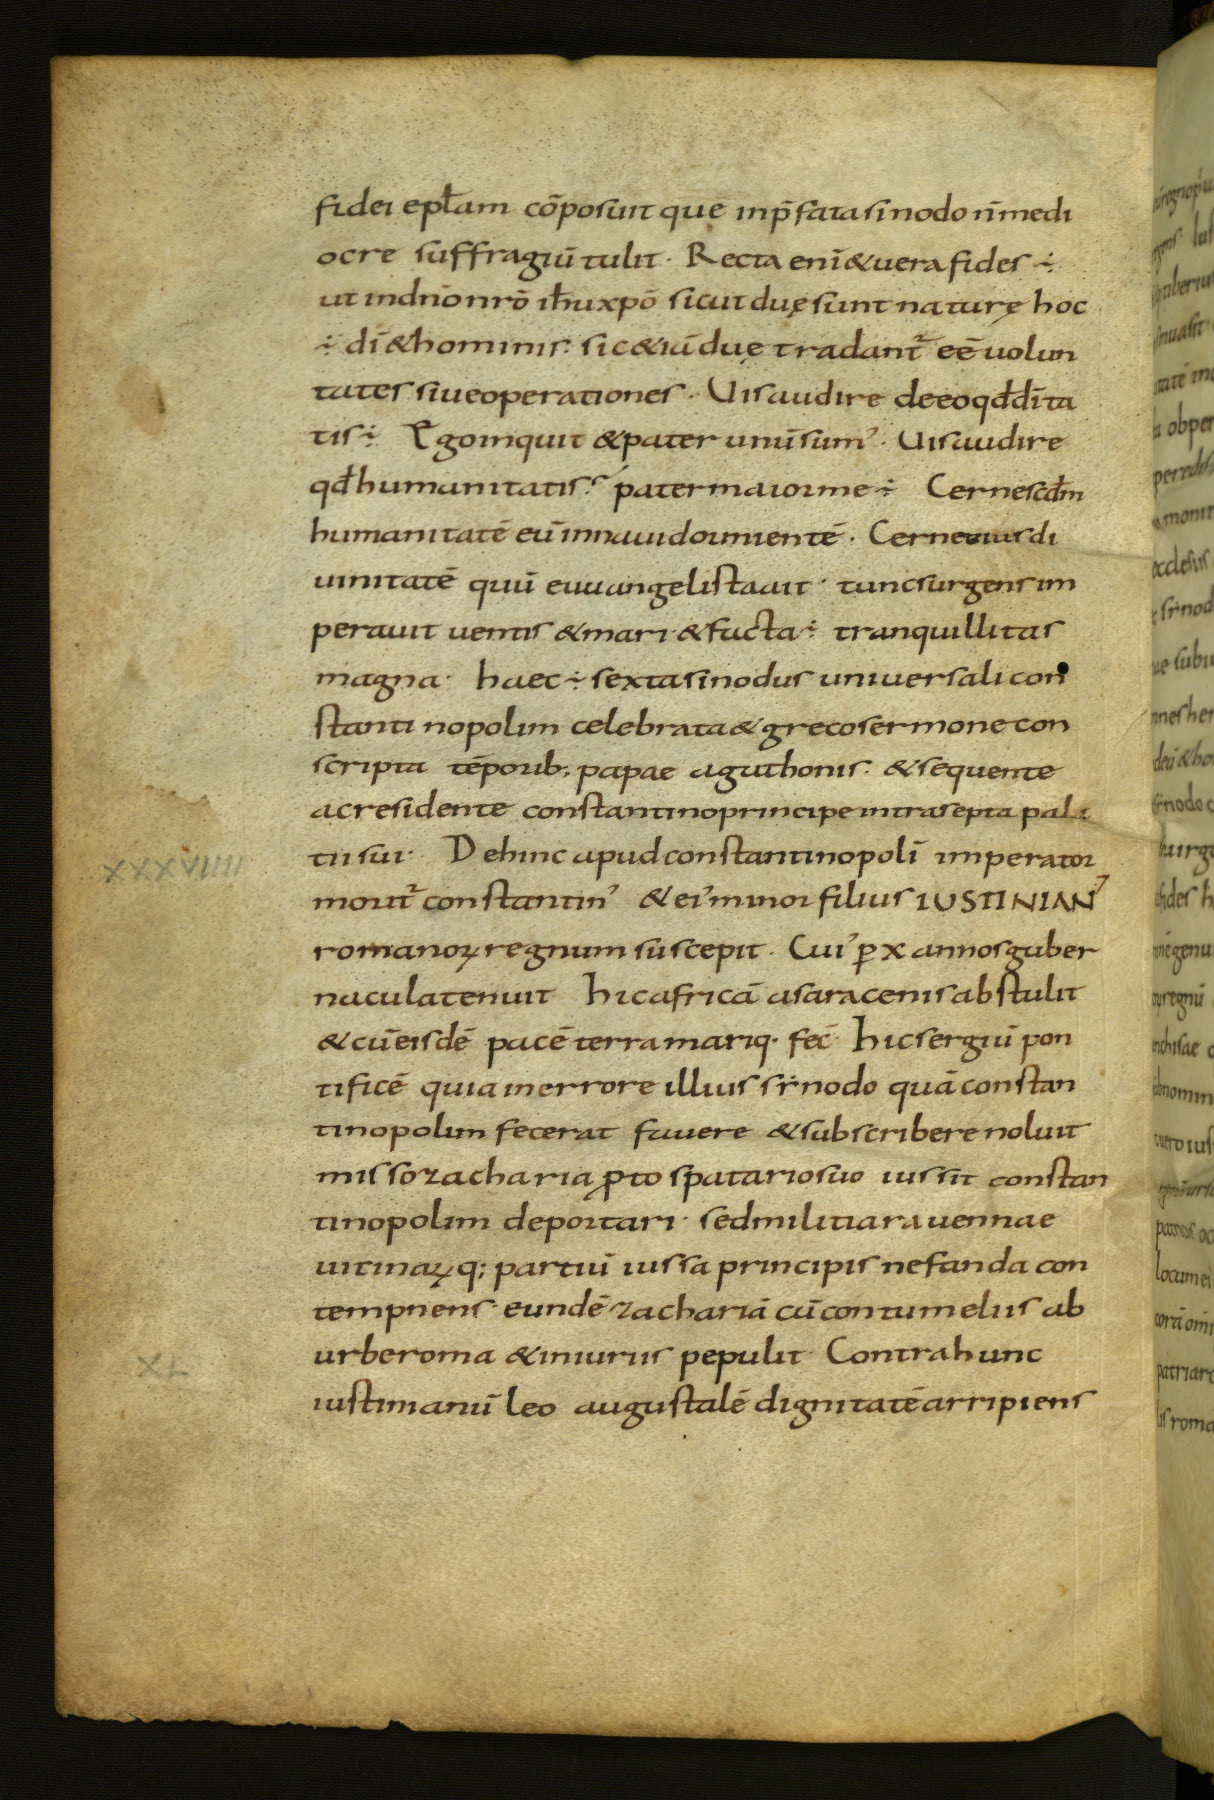 fidei epl̄am cōposuit que in p̄fata sinodo n̄ medi
ocre suffragiū tulit · Recta eni᷄ & uera fides ÷
ut in dn̄o nr̄o ih̄u xp̄o sicut duę sunt naturę hoc
÷ dī & hominis · sic & iā duę tradant᷑ eē uolun
tates siue operationes · Uis audire de eo qd̄ dīta
tis ÷ Ego inquit & pater unū sum᾿ · Uis audire
qd̄ humanitatis ÷ pater maior me ÷ Cerne scd̄m
humanitatē eū in naui dormientē · Cerne eius di
uinitatē quū euuangelista ait · tunc surgens im
perauit uentis & mari & facta ÷ tranquillitas
magna · haec ÷ sexta sinodus uniuersali con
stantinopolim celebrata & greco sermone con
scripta tēporib; papae agathonis · & sequente
ac residente constantino principe intra septa pala
tii sui · Dehinc apud constantinopolī imperator
XXXVIIII
morit᷑ constantin᾿ & ei᾿ minor filius IUSTINIAN᾿
romanoꝝ regnum suscepit · Cui᾿ ꝑ x annos guber
nacula tenuit hic africā a saracenis abstulit
& cū eisdē pacē terra mariq· fec̄ · hic sergiū pon
tificē quia in errore illius sẏnodo quā constan
tinopolim fecerat fauere & subscribere noluit
misso zacharia ꝓtospatario suo iussit constan
tinopolim deportari · sed militia rauennae
uitinaꝝq; partiū iussa principis nefanda con
tempnens eundē zachariā cū contumeliis ab
urbe roma & iniuriis pepulit · Contra hunc
XL
iustinianū leo augustalē dignitatē arripiens